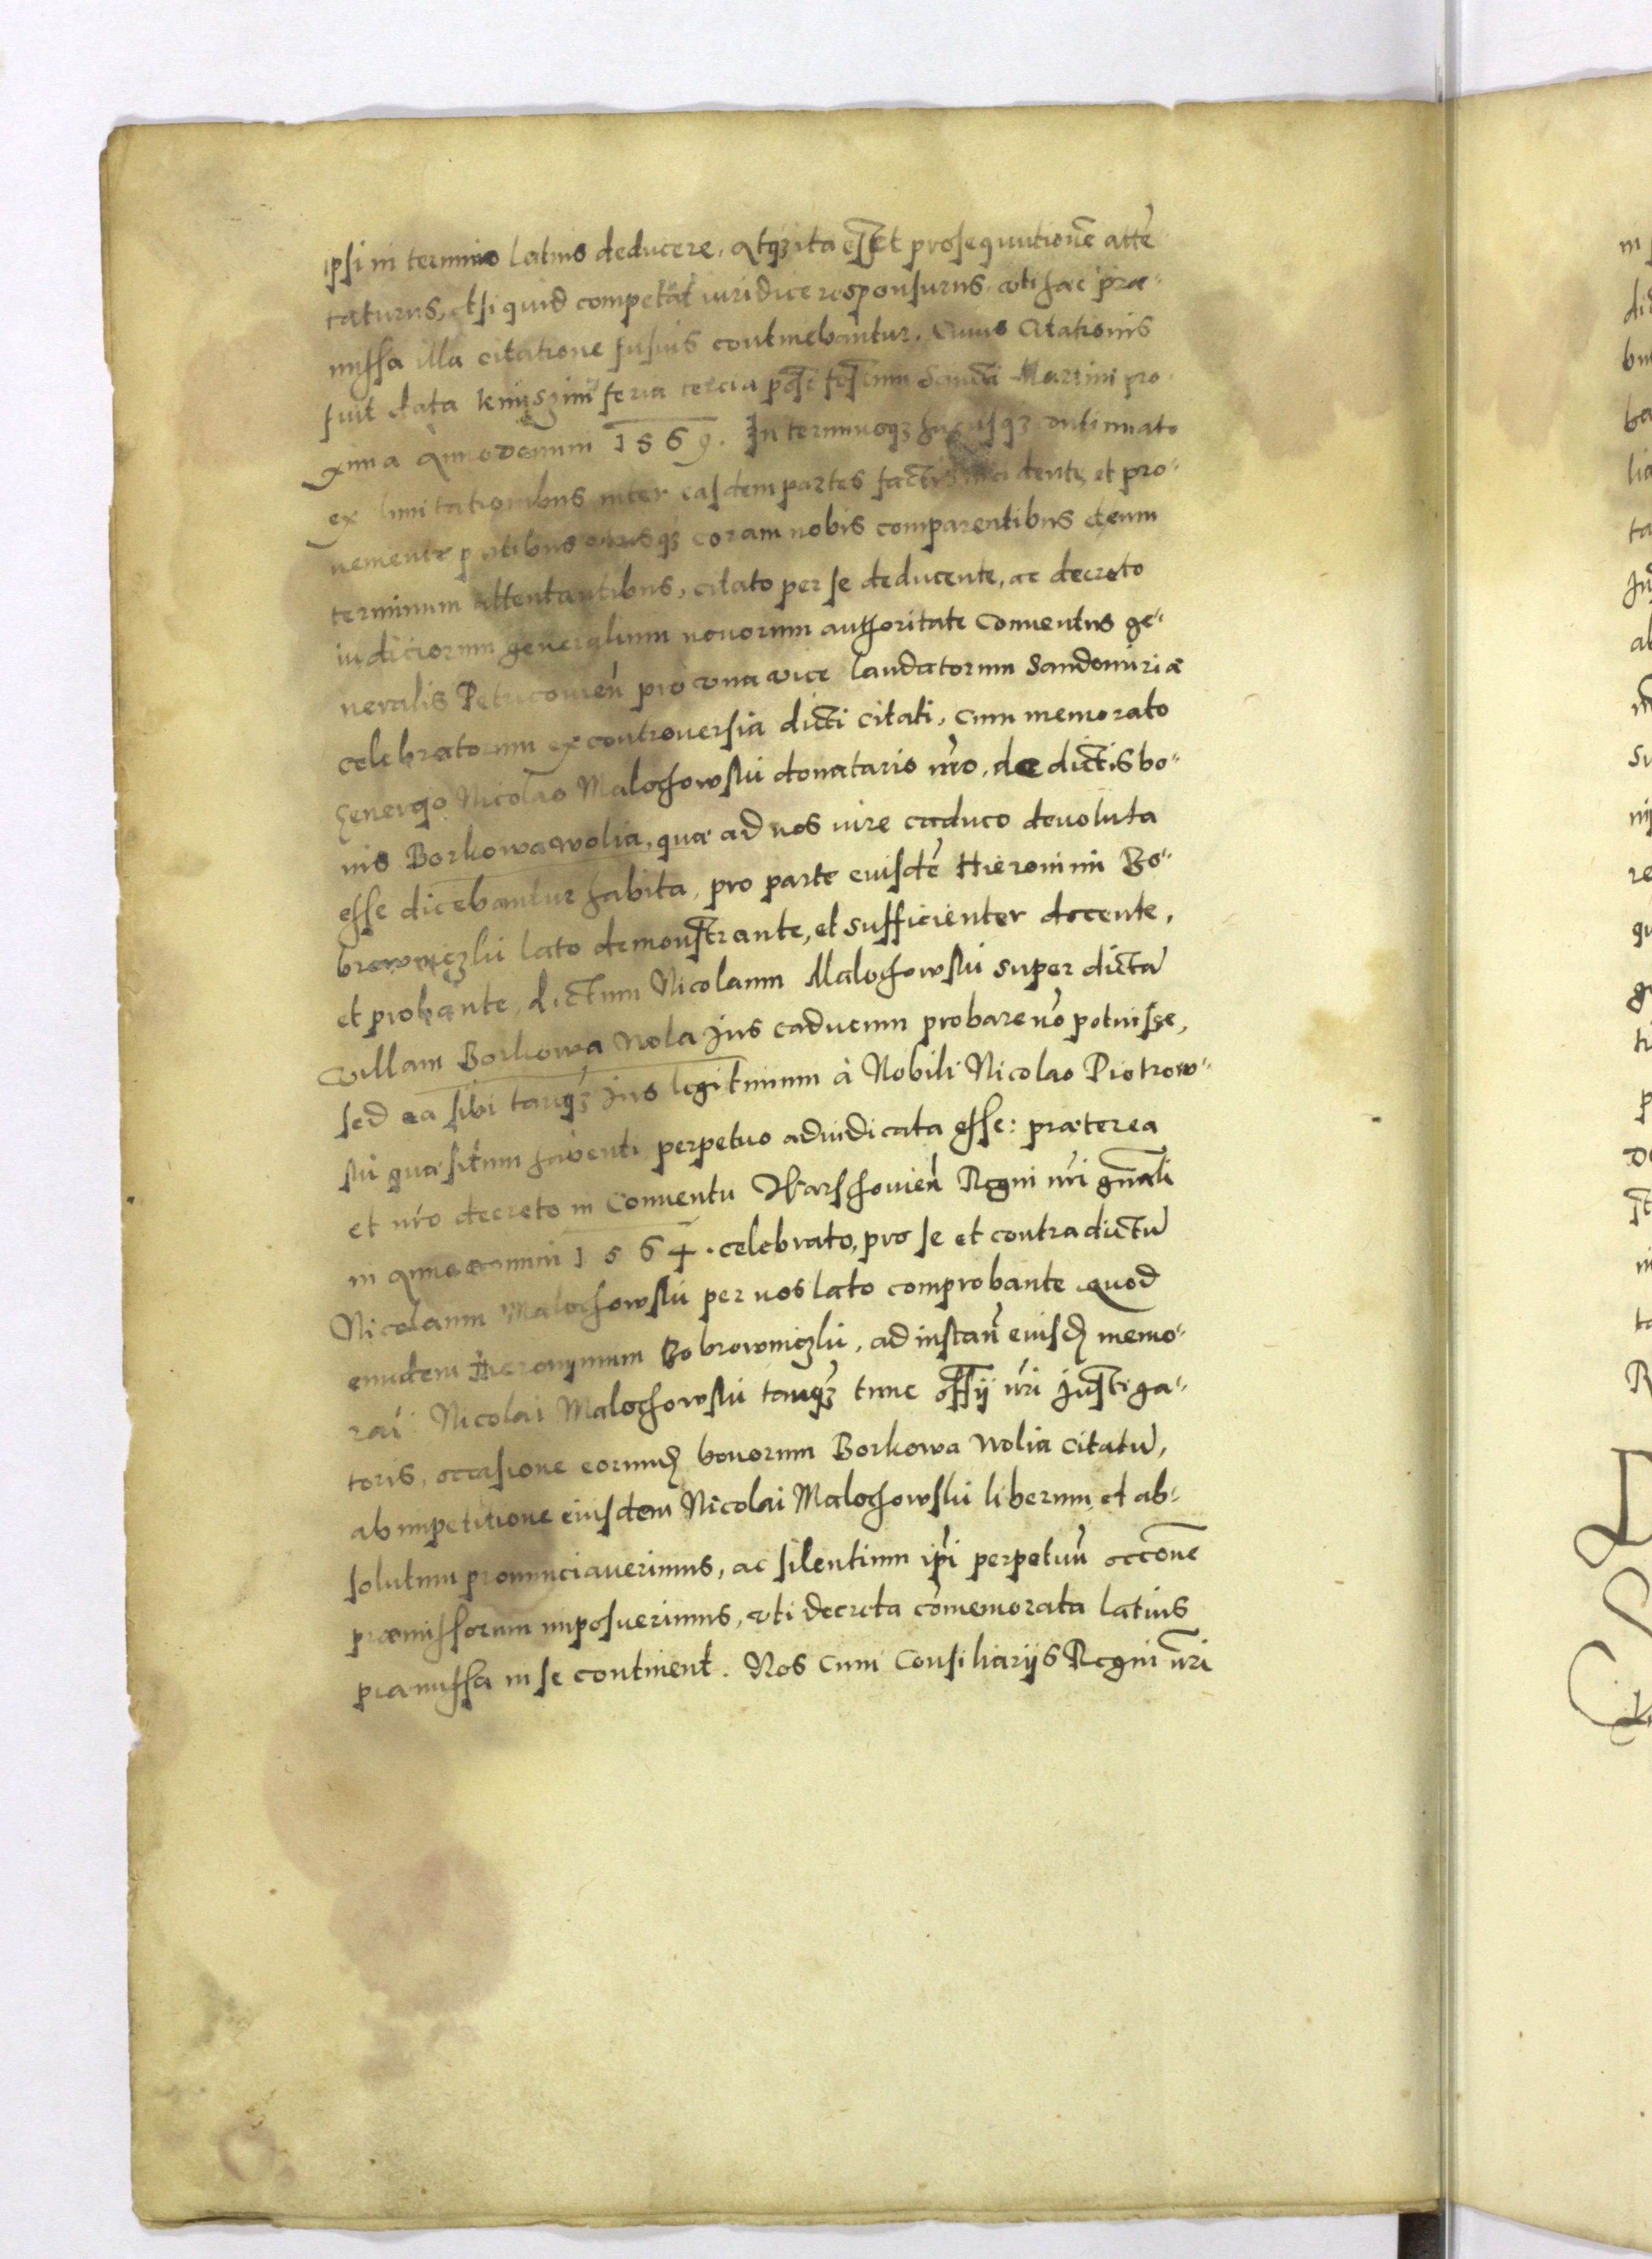 ipsi in termino latius deducere. Atq3 ita esset prosequutionē attē
taturus, et si quid competat iuridice responsurus. uti hæc præ-
missa illa citatione fusius continebantur. Cuius Citationis
fuit data Kniszini feria tercia post festum Sancti Martini pro
xima Anno domini 1569. In terminoq3 hucusq3 continuato
ex limitationibus inter easdem partes factis incidente, et pro-
ueniente partibus coram nobis comparentibus et eum
terminum attentantibus, citato per se deducente, ac decreto
iudiciorum generalium nouorum authoritate Conuentus ge-
neralis Petricouień pro una vice laudatorum Sandomiriæ
celebratorum ex controuersia dicti citati, cum memorato
Generoso Nicolao Malochowski donatario nrō, de dictis bo-
nis Borkowa wolia, quæ ad nos iure caduco deuoluta
esse dicebantur habita, pro parte eiusdē Hieronimi Bo-
browniczki lato demonstrante, et sufficienter docente,
et probante, dictum Nicolaum Malochowski super dicta
villam Borkowa Wola Jus caducum probare nō potuisse,
sed ea sibi tanq3 Jus legitimum à Nobili Nicolao Piotrow-
ski quæsitum habenti perpetuo adiudicata esse: præterea
et nrō decreto in Conuentu Warschouień Regni nrī gnāli
in Anno domini 1564. celebrato, pro se et contra dictū
Nicolaum Malochowski per nos lato comprobante quod
eundem Hieronymum Bobrowniczki, ad instań eiusd memo-
rati Nicolai Malochowski tanq3 tunc offīj nrī Justiga-
toris, occasione eorund bonorum Borkowa Wolia citatū,
ab impetitione eiusdem Nicolai Malochowski liberum et ab-
solutum pronunciauerimus, ac silentium ipī perpetuū occōne
præmissorum imposuerimus, uti decreta cōmemorata latius
præmissa in se continent. Nos cum Consiliarijs Regni nrī